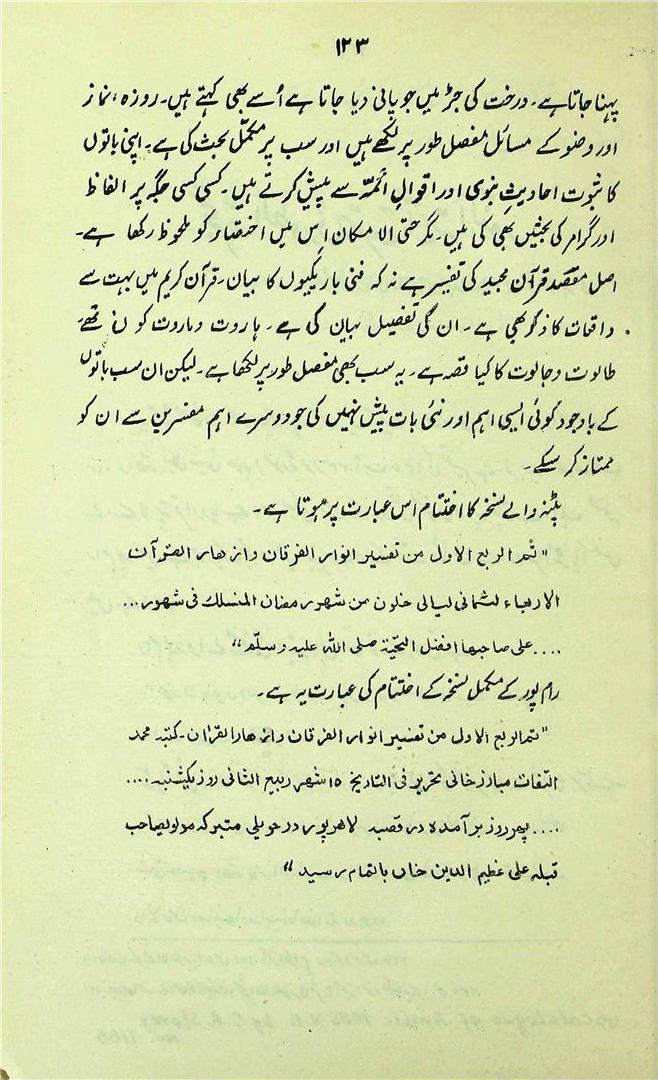 ۱۲۳
پہنا جاتا ہے۔ درخت کی جڑ میں جو پانی دیا جاتا ہے اُسے بھی کہتے ہیں۔ روزہ، نماز
اور وضو کے مسائل مفصل طور پر لکھے ہیں اور سب پر مکمّل بحث کی ہے۔ اپنی باتوں
کا ثبوت احادیثِ نبوی اور اقوالِ ائمّہ سے پیش کرتے ہیں۔ کسی کسی جگہ پر الفاظ
اور گرامر کی بحثیں بھی کی ہیں۔ مگر حتی الامکان اس میں اختصار کو ملحوظ رکھا ہے۔
اصل مقصد قرآن مجید کی تفسیر ہے نہ کہ فنی باریکیوں کا بیان۔ قرآن کریم میں بہت سے
واقعات کا ذکر بھی ہے۔ ان کی تفصیل بیان کی ہے۔ ہاروت وماروت کون تھے۔
طالوت وجالوت کا کیا قصہ ہے۔ یہ سب بھی مفصل طور پر لکھا ہے۔ لیکن ان سب باتوں
کے باوجود کوئی ایسی اہم اور نئی بات پیش نہیں کی جو دوسرے اہم مفسرین سے ان کو
ممتاز کر سکے۔
پٹنہ والے نسخہ کا اختتام اس عبارت پر ہوتا ہے۔
"تم الربع الاول من تفسیر انوار الفرقان وازھار القرآن
الاربعاء لثمانی لیالی خلون من شھور رمضان المنسلک فی شھور...
....علی صاحبھا افضل التحیّۃ صلی اللہ علیہ وسلّم"
رام پور کے مکمل نسخہ کے اختتام کی عبارت یہ ہے۔
"تم الربع الاول من تفسیر انوار الفرقان وازھار القرآن۔ کتبہ محمد
التفات مبارز خانی تحریر فی التاریخ ۱۵ شھر ربیع الثانی روز یکشنبہ....
....پھر روز برآمدہ در قصبہ لاھرپور در حویلی متبوکہ مولویصاحب
قبلہ علی عظیم الدین خاں باتمام رسید"